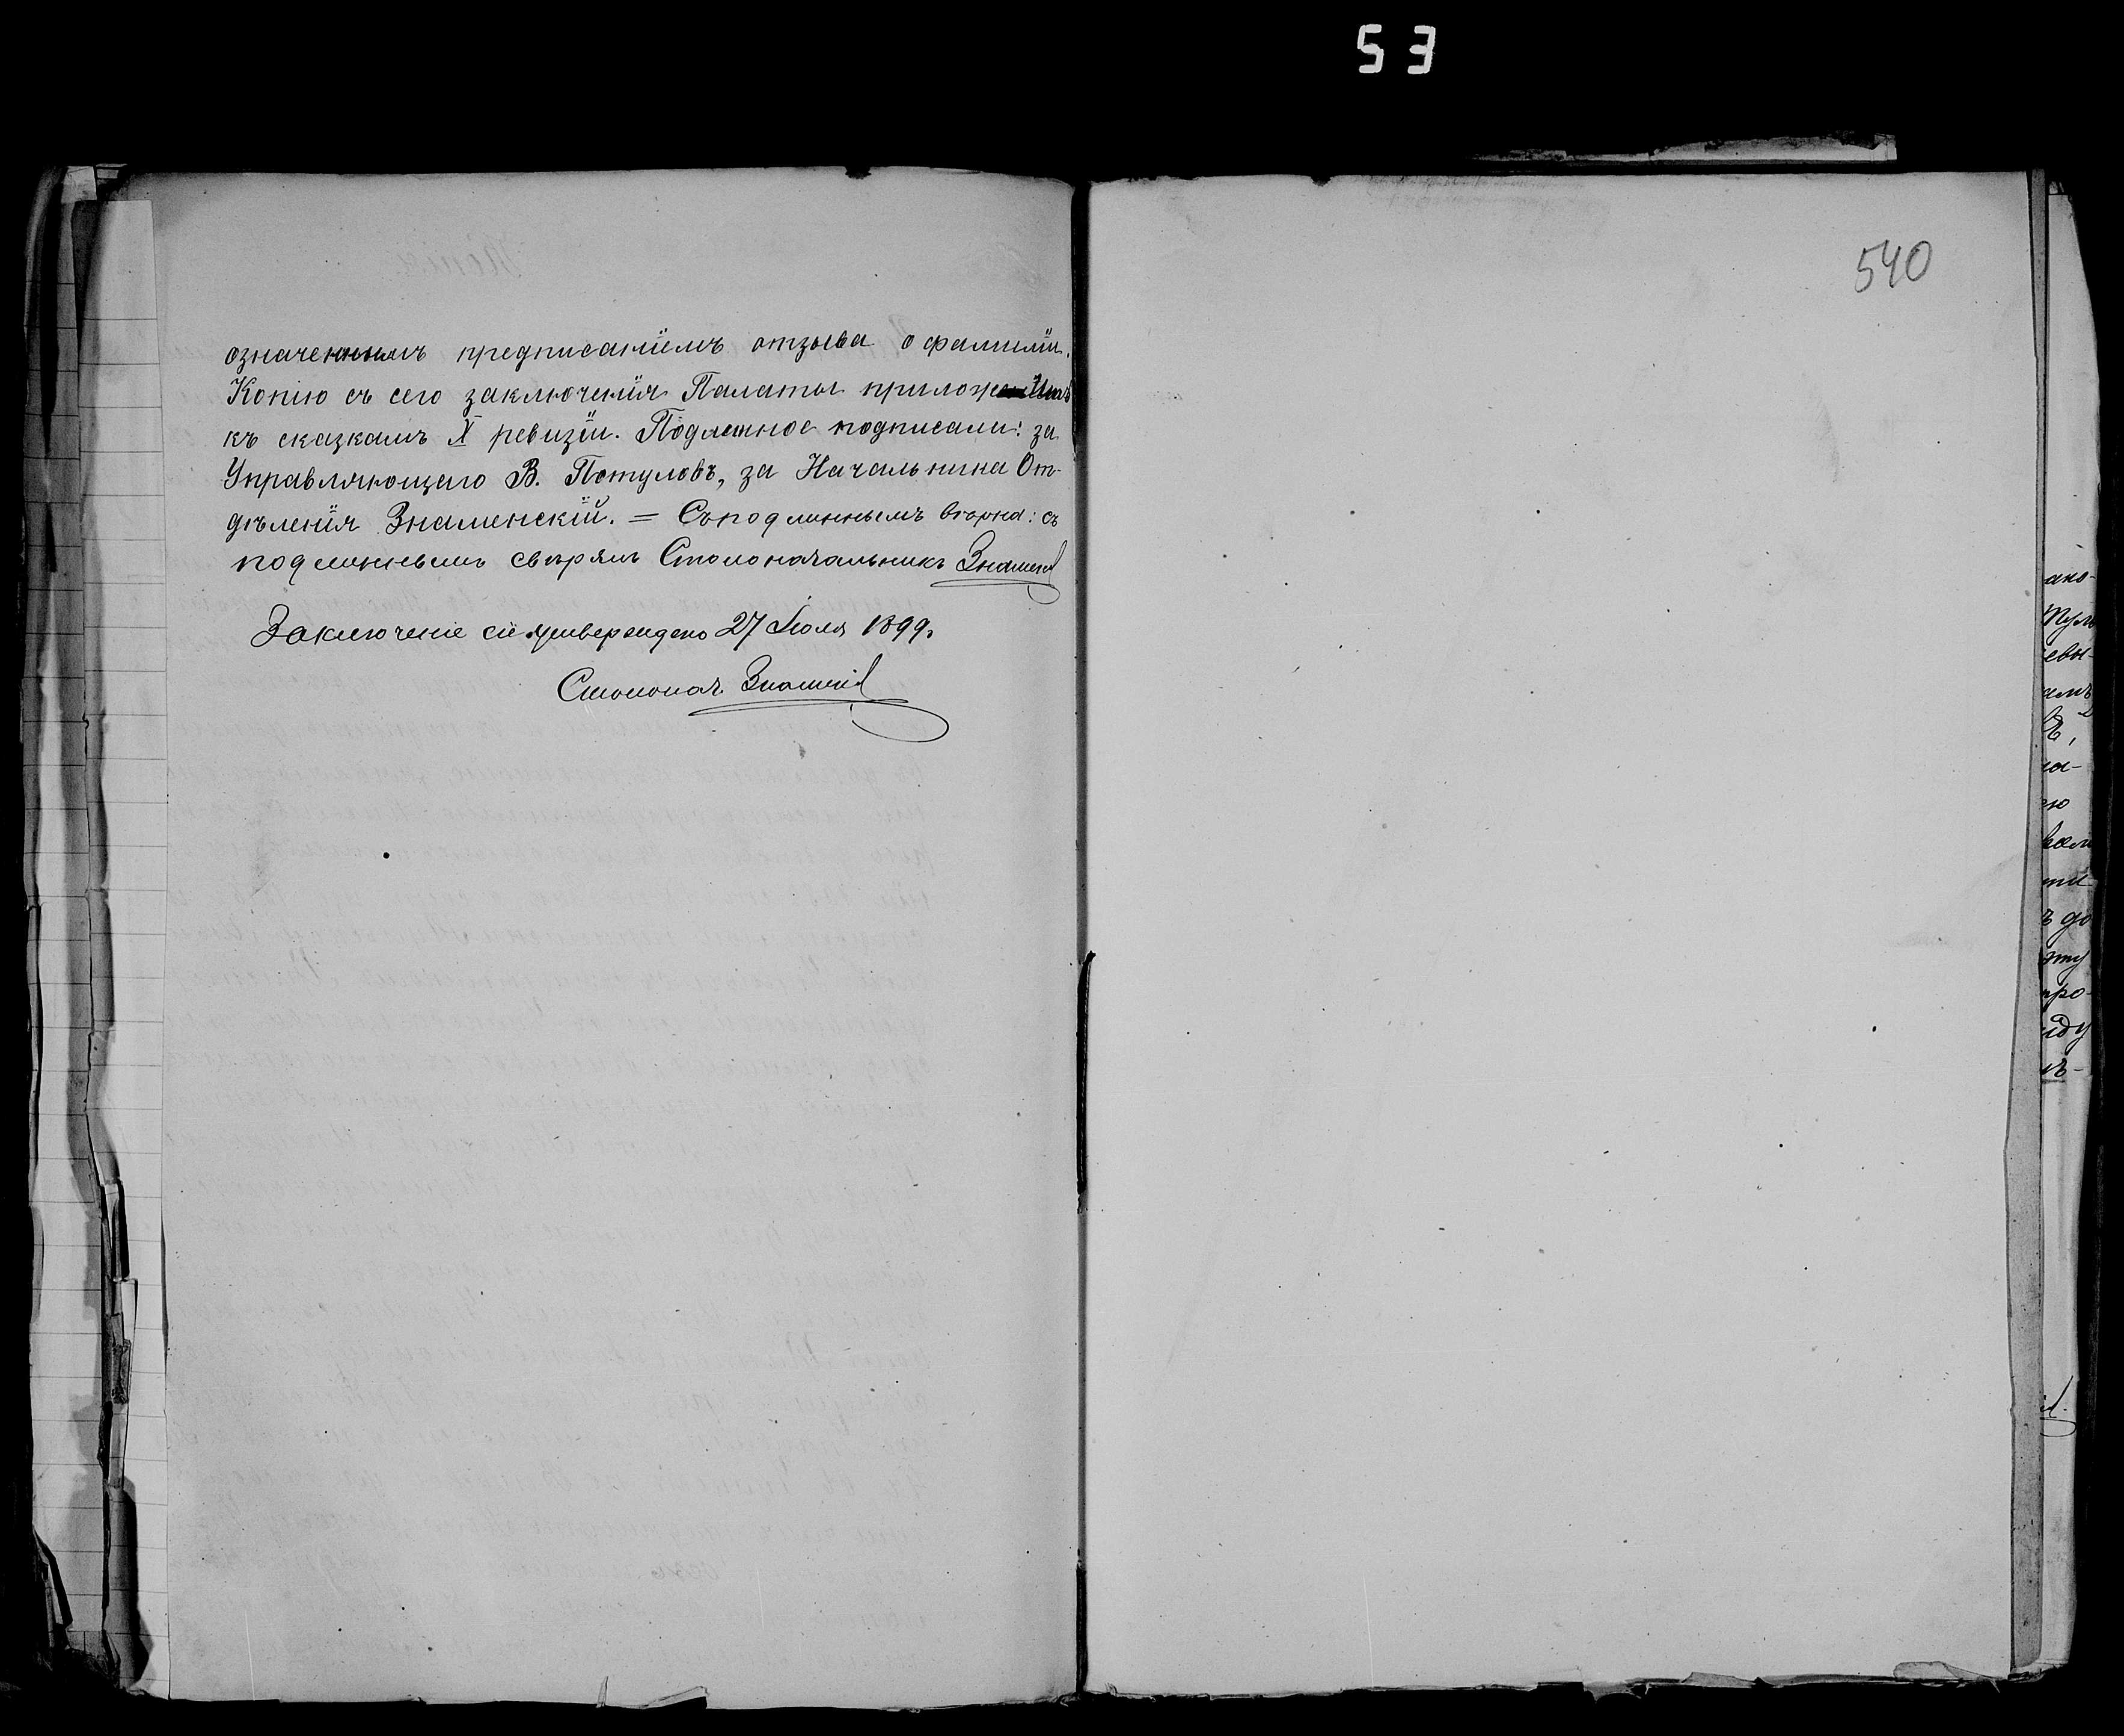 53
540
означеннымъ предписаніемъ отзыва о фамиліи.
Копію съ сего заключенія Палаты приложить
къ сказкамъ X ревизіи. Подлинное подписали: за
Управляющаго В. Потуловъ, за Начальника От-
дѣленія Знаменскій. = Съ подлиннымъ вѣрно: съ
подлиннымъ свѣрялъ Столоначальникъ
Заключеніе сіе утверждено 27 Іюля 1899г.
Столонач.
ано-
евы-
ла-
ъ до
эту
про-
иду